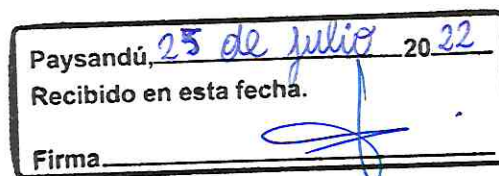 Paysandú, 25 de julio 20 22
Recibido en esta fecha.
Firma